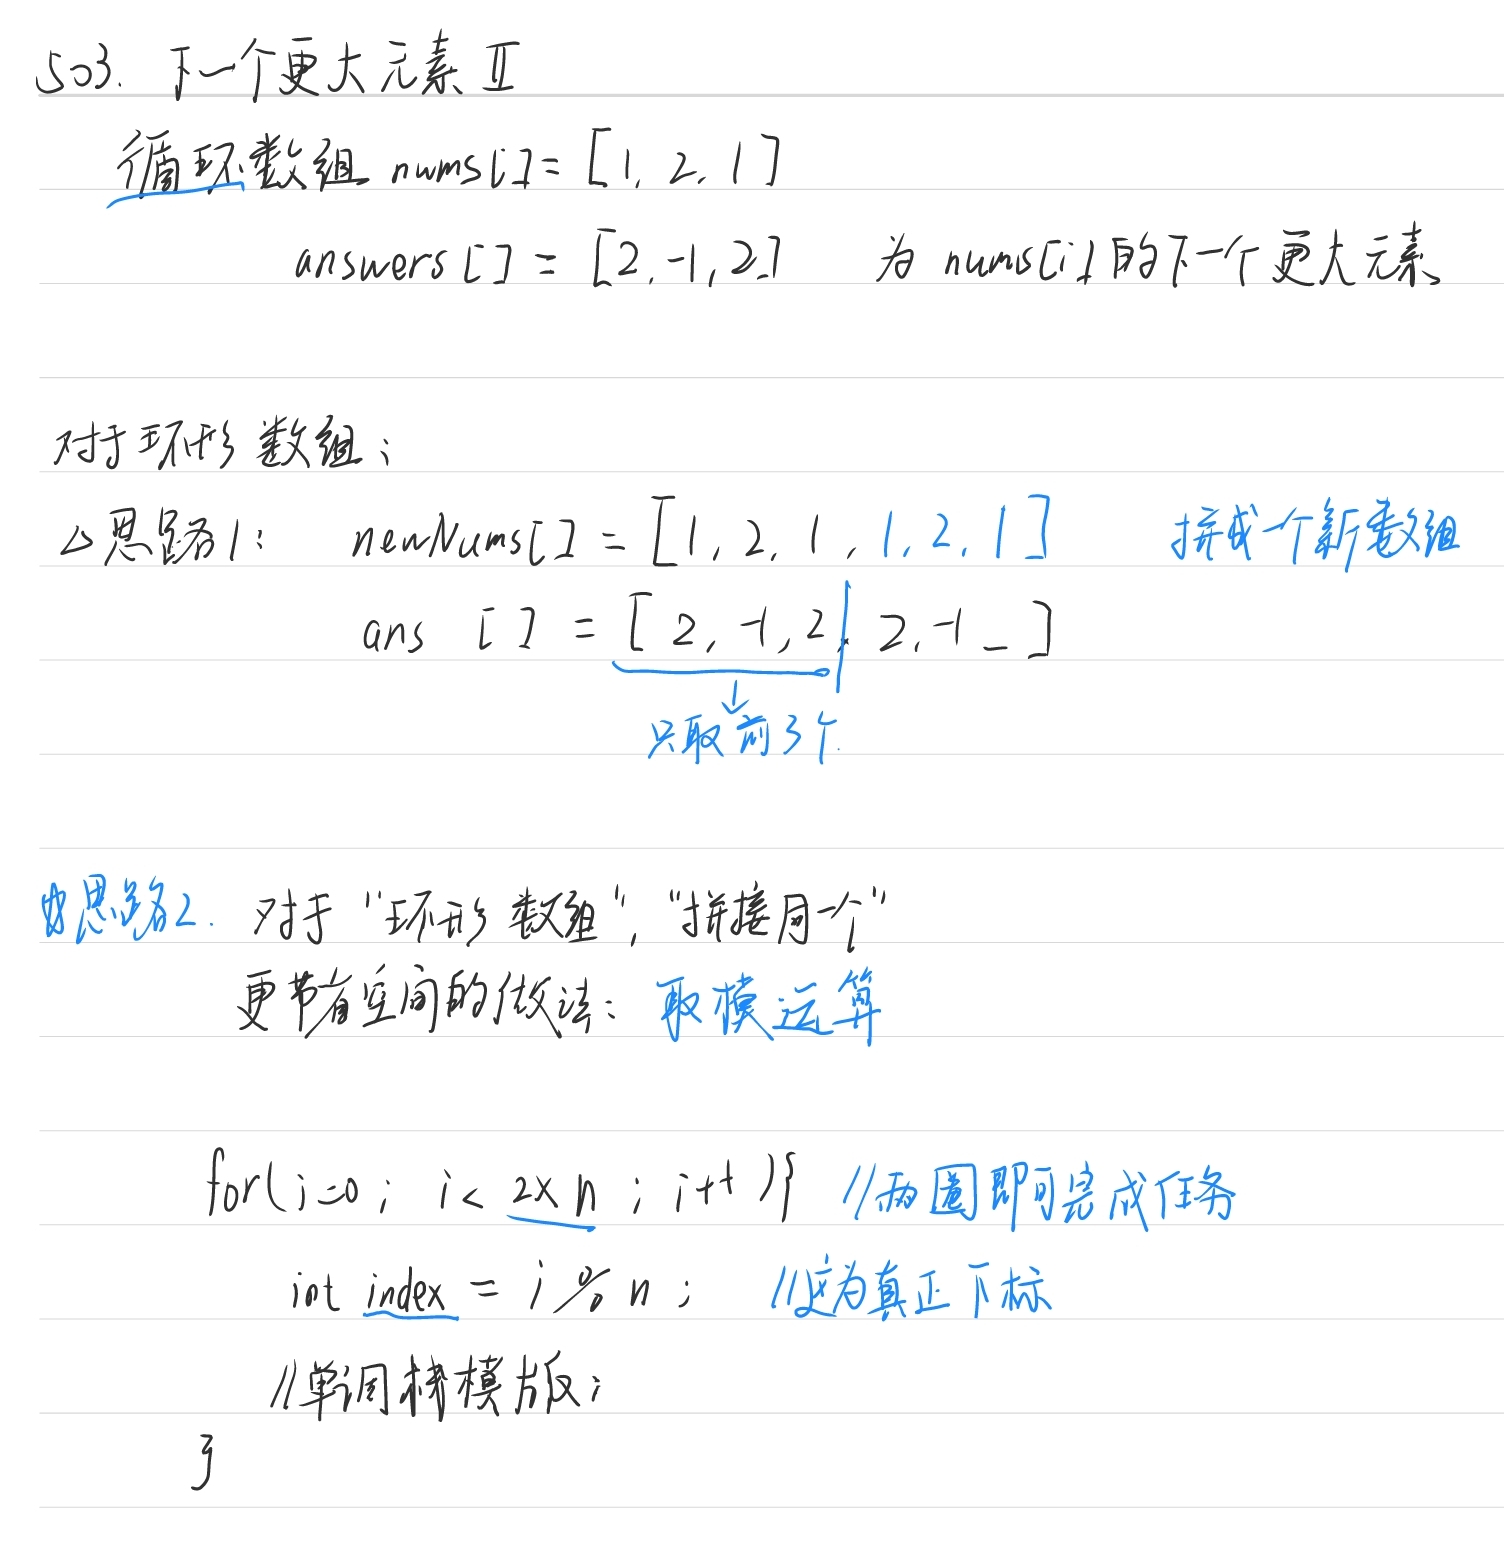 503. 下一个更大元素 II
循环数组 nums[i] = [1, 2, 1]
answers [] = [2, -1, 2] 为 nums[i] 的下一个更大元素
对于环形数组;
△思路1: newNums[] = [1, 2, 1, 1, 2, 1] 拼成一个新数组
ans [] = [2, -1, 2, 2, -1 _ ]
只取前3个.
思路2. 对于 "环形数组", "拼接同一个"
更节省空间的做法: 取模运算
for(i=0; i < 2×n ; i++){ //两圈即可完成任务
int index = i % n ; //这为真正下标
//单调栈模版;
}